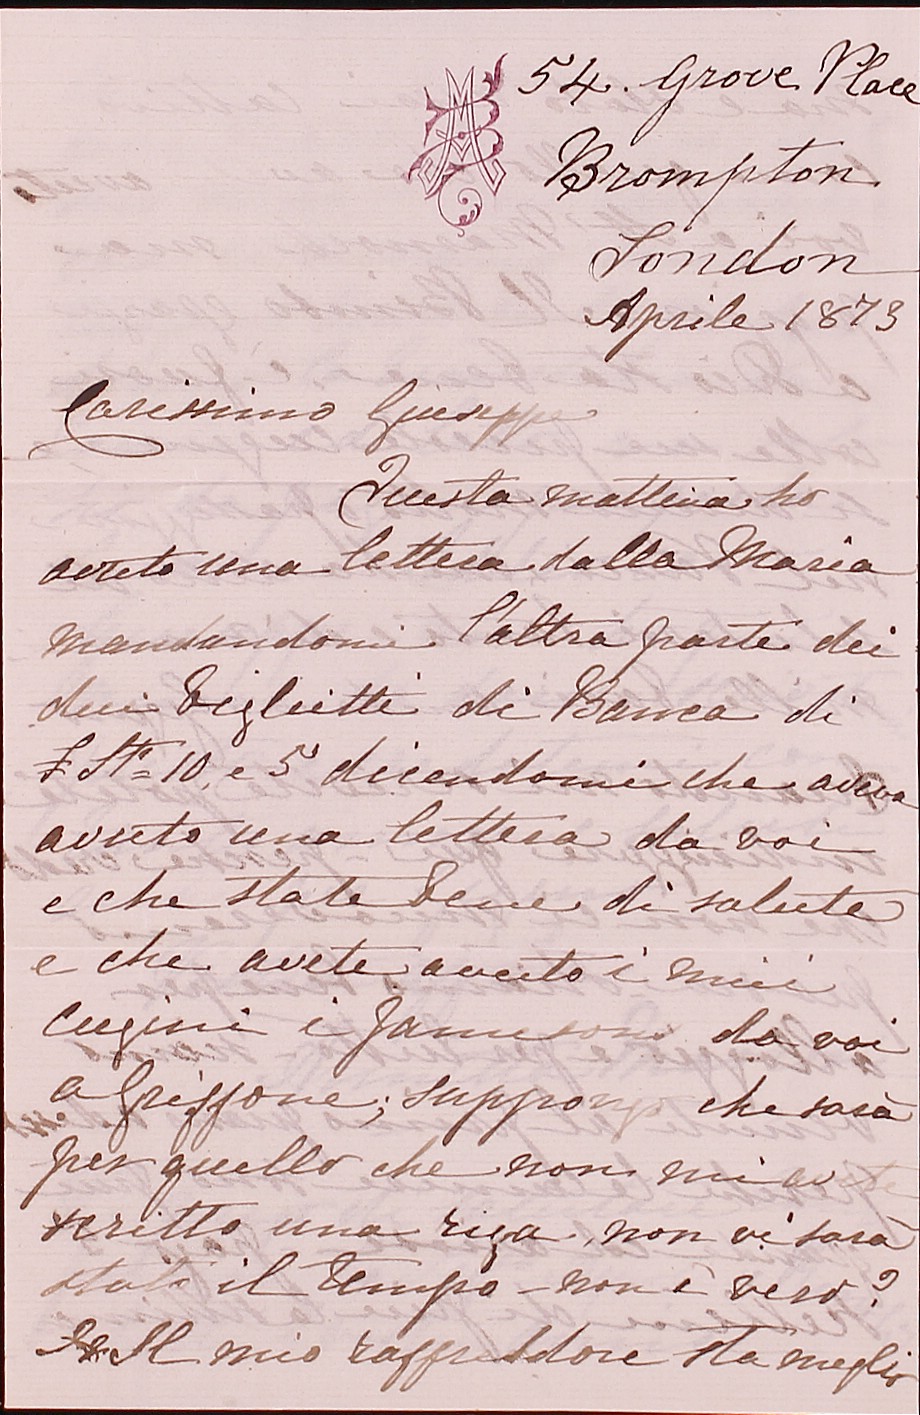 54. Grove Place
Brompton
London
Aprile 1873
Carissimo Giuseppe
Questa mattina ho
avuto una lettera dalla Maria
mandandomi l'altra parte dei
duei biglietti di Banca di
£ St.= 10 e 5 dicendomi che aveva
avuto una lettera da voi
e che state bene di salute
e che avete avuto i miei
cugini i Jamesons da voi
a Griffone; suppongo che sarà
per quello che non mi avete
scritto una riga, non vi sarà
stato il tempo - non è vero?
Il mio raffreddore sta meglio